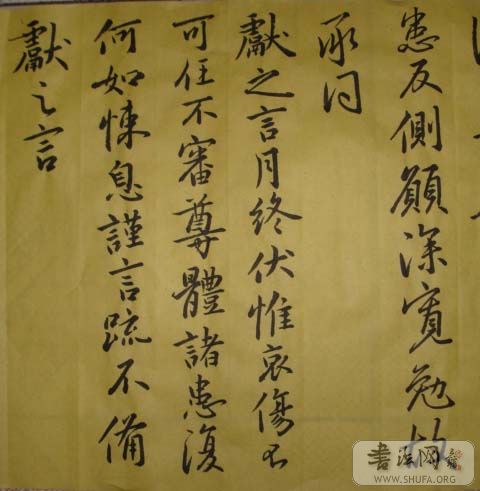 患反側願深寬勉故
承問
獻之言月終伏惟哀傷不
可任不審尊體諸患復
何如悚息謹言疏不備
獻之言
書法网
WWW.SHUFA.ORG